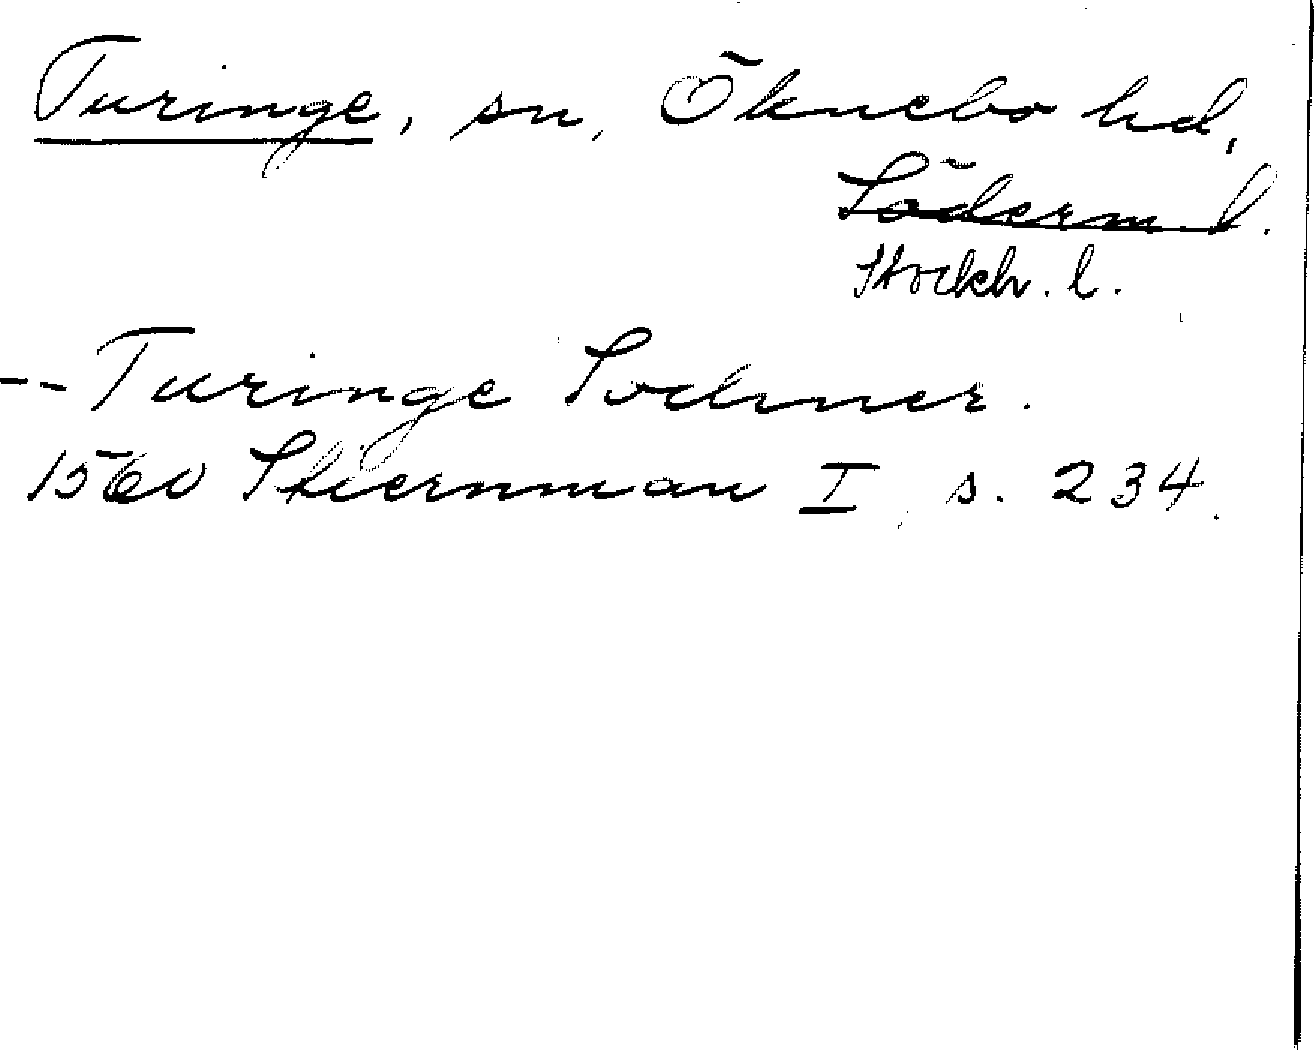 Turinge, sn, Öknebo hd,
Söderm. l.
Stockh. l.
-- Turinge Sochner.
1560 Stiernman I, s. 234.